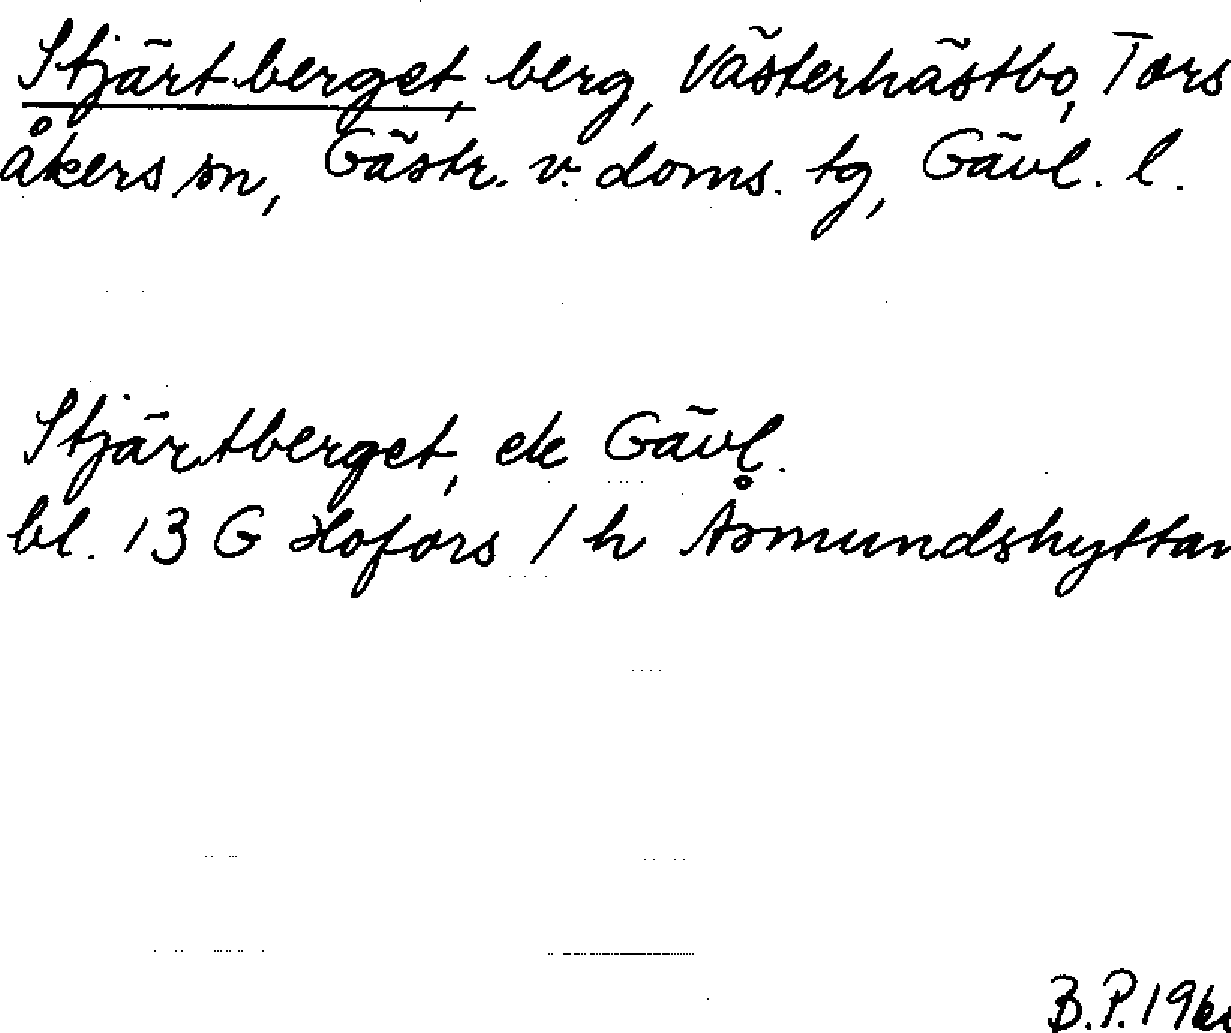 Stjärtberget, berg, Västerhästbo, Tors
åkers sn, Gästr. v. doms. tg, Gävl. l.
Stjärtberget, ek Gävl.
bl. 13 G Hofors / h Åsmundshyttan
B.P.